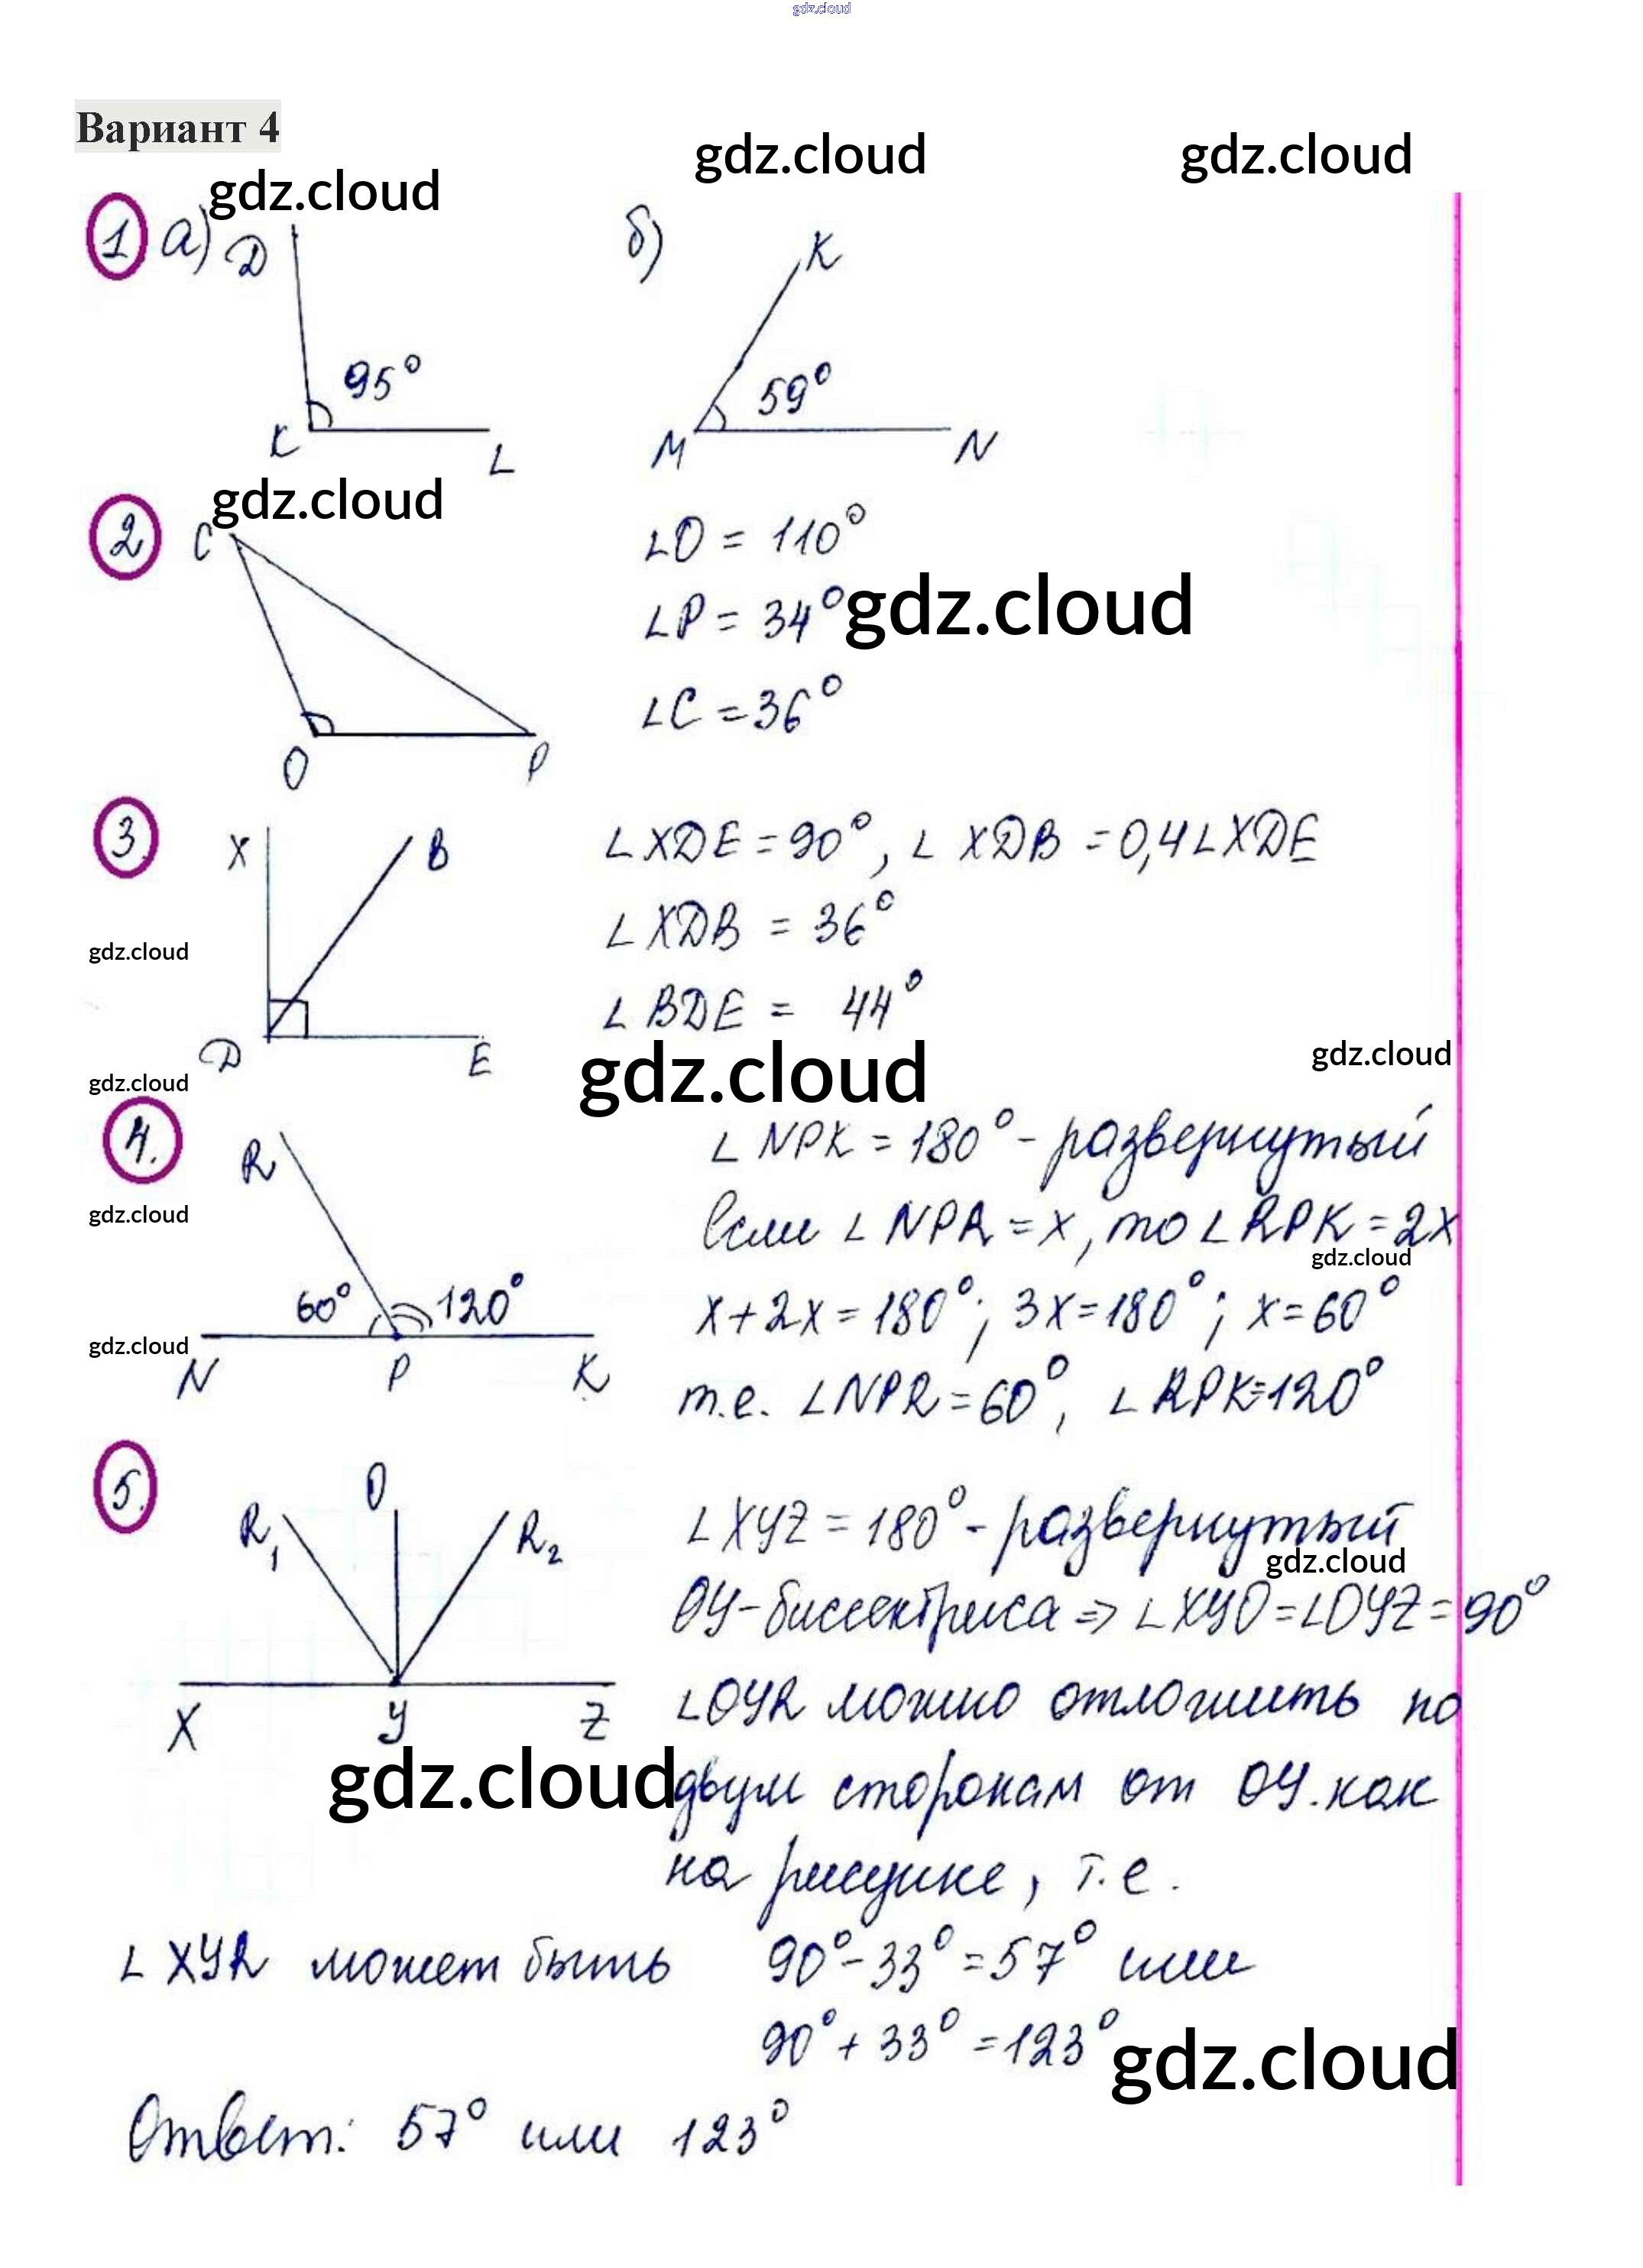 gdz.cloud
Вариант 4
gdz.cloud gdz.cloud
gdz.cloud
1 а) D б) K
95° 59°
K L M N
gdz.cloud
2 C ∠O = 110°
∠P = 34° gdz.cloud
∠C = 36°
O P
3. X B ∠XDE = 90°, ∠XDB = 0,4∠XDE
∠XDB = 36°
gdz.cloud
∠BDE = 44°
D E
gdz.cloud gdz.cloud
gdz.cloud
4. R ∠NPK = 180° - развернутый
gdz.cloud
Если ∠NPR = x, то ∠RPK = 2x
gdz.cloud
60° 120° x + 2x = 180°; 3x = 180°; x = 60°
gdz.cloud
N P K т.е. ∠NPR = 60°, ∠RPK = 120°
5. R₁ O R₂ ∠XYZ = 180° - развернутый
gdz.cloud
OY - биссектриса ⇒ ∠XYO = ∠OYZ = 90°
X Y Z ∠OYR можно отложить по
gdz.cloud двум сторонам от OY. как
на рисунке, т.е.
∠XYR может быть 90° - 33° = 57° или
90° + 33° = 123°
gdz.cloud
Ответ: 57° или 123°